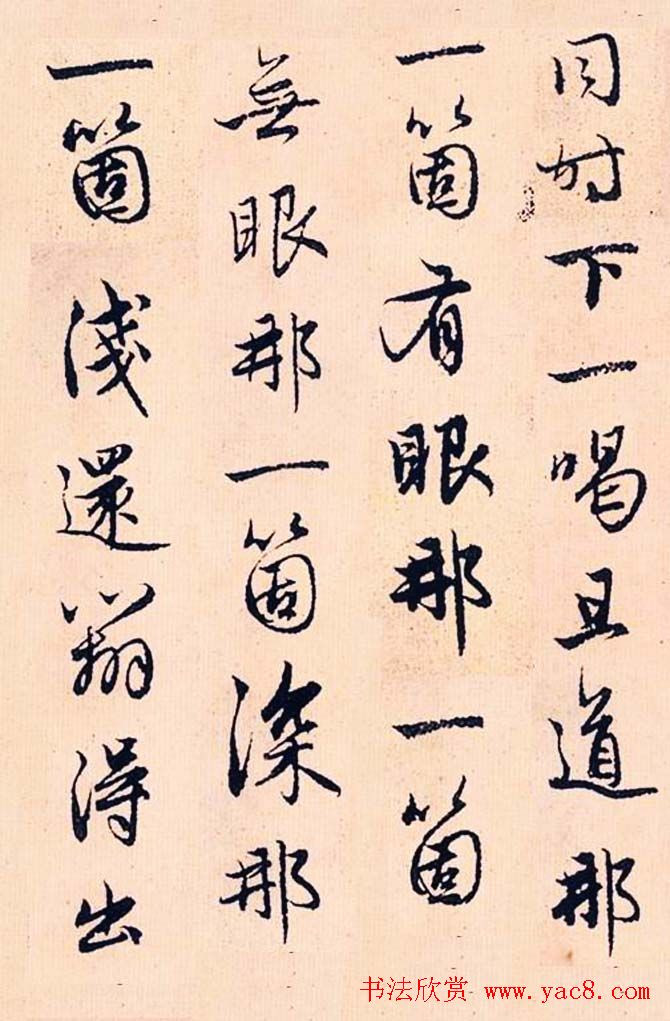 同時下一喝且道那
一箇有眼那一箇
無眼那一箇深那
一箇淺還得出
书法欣赏 www.yac8.com